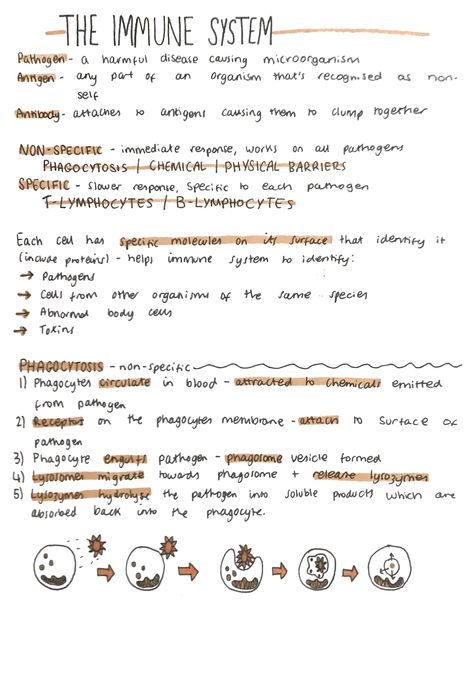 THE IMMUNE SYSTEM
Pathogen - a harmful disease causing microorganism
Antigen - any part of an organism that's recognised as non-
self
Antibody - attaches to antigens causing them to clump together
NON-SPECIFIC - immediate response, works on all pathogens
PHAGOCYTOSIS | CHEMICAL | PHYSICAL BARRIERS
SPECIFIC - slower response, specific to each pathogen
T-LYMPHOCYTES / B-LYMPHOCYTES
Each cell has specific molecules on its surface that identify it
(include proteins) - helps immune system to identify:
→ Pathogens
→ Cells from other organisms of the same species
→ Abnormal body cells
→ Toxins
PHAGOCYTOSIS - non-specific
1) Phagocytes circulate in blood - attracted to chemicals emitted
from pathogen
2) Receptors on the phagocytes membrane - attach to surface of
pathogen
3) Phagocyte engulfs pathogen - phagosome vesicle formed
4) Lysosomes migrate towards phagosome + release lysozymes
5) Lysozymes hydrolyse the pathogen into soluble products which are
absorbed back into the phagocyte.